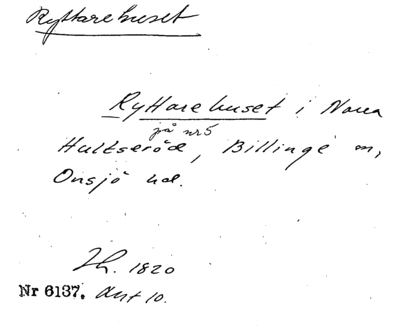 Ryttarehuset
Ryttarehuset i Norra
på nr 5
Hultseröd, Billinge sn,
Onsjö hd.
Lh. 1820
Nr 6137. Avst 10.